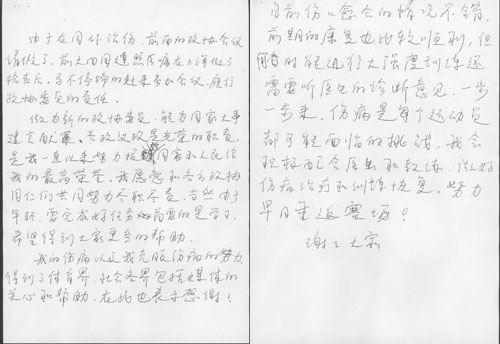 由于在国外治伤，前面的政协会议
请假了，前天回国遵照医嘱在上海做了
检查后，马不停蹄的赶来参加会议，履行
政协委员的责任。
作为新的政协委员，能为国家大事
建言献策、参政议政是光荣的职责，
是我一直以来努力报国家和人民给
我的最高荣誉。我愿意和各方政协
同仁们共同努力尽职尽责。当然由于
年轻，要完成好任务的需要的是学习，
希望得到大家更多的帮助。
我的伤病以及我克服伤病的努力
得到了体育界、社会各界包括媒体的
关心和帮助，在此也表示感谢！
目前伤口愈合的情况不错，
前期的康复也比较顺利，但
何时能进行大强度训练还
需要听医生的诊断意见，一步
一步来。伤病是每个运动员
都可能面临的挑战，我会
积极配合医生和教练，做好
伤病治疗和训练恢复，努力
早日重返赛场！
谢谢大家